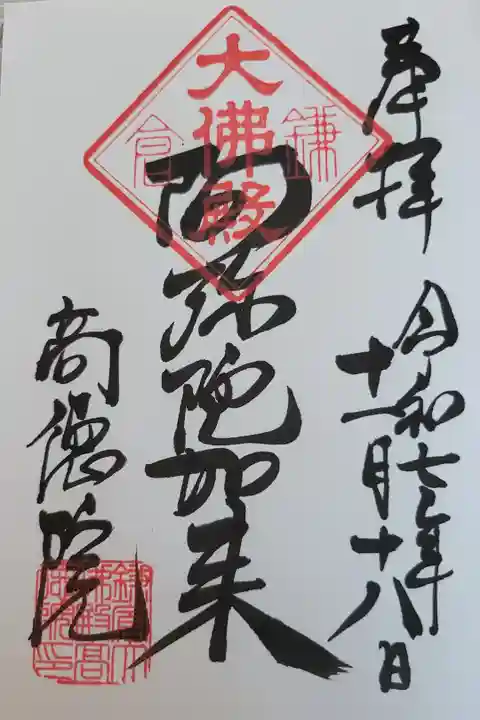 奉拝
令和七年
十一月十八日
鎌倉
大佛殿
阿弥陀如来
高徳院